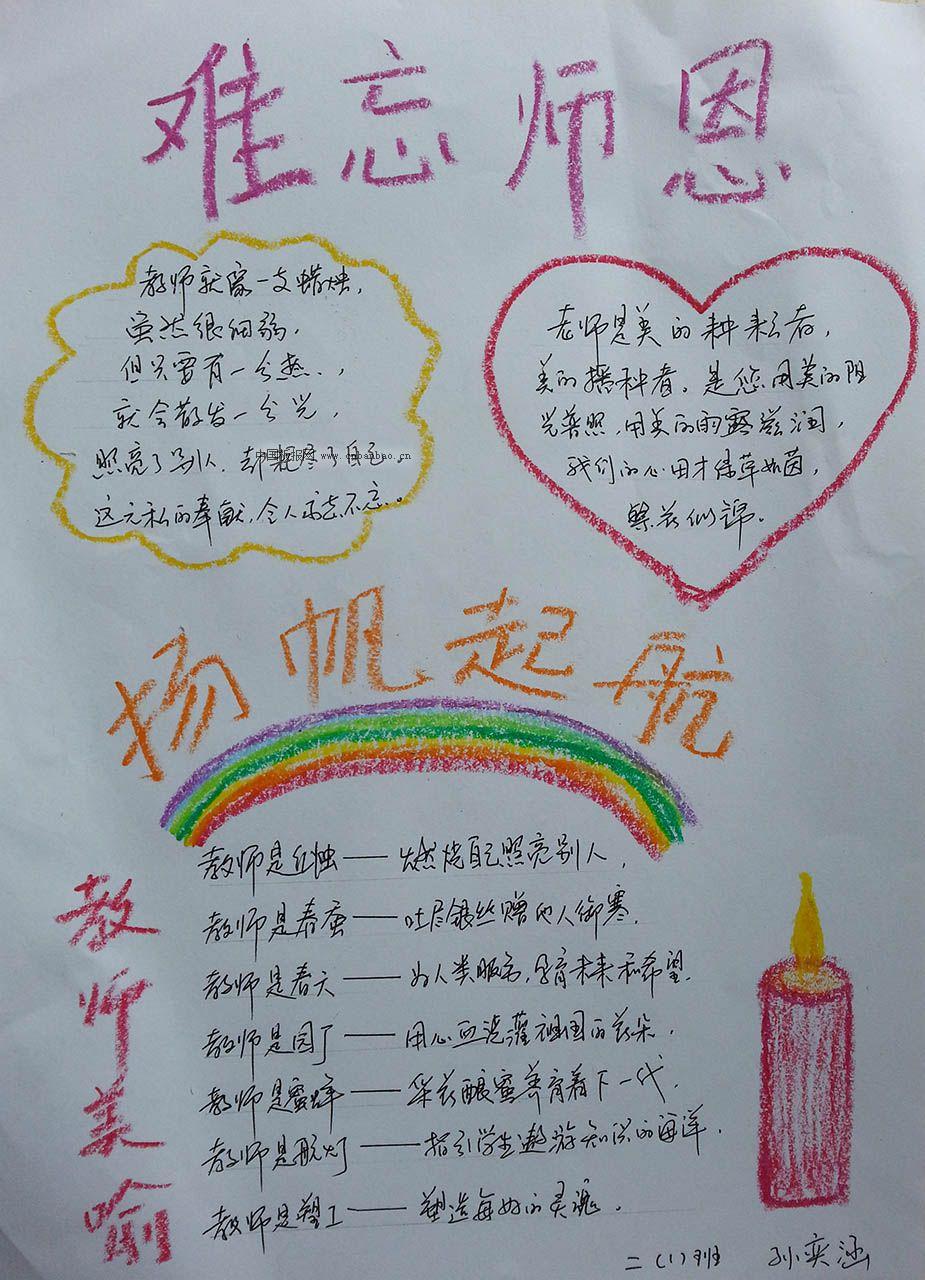 难忘师恩
教师就像一支蜡烛，
虽然很细弱，
但只要有一分热，
就会散发一分光，
照亮了别人，却耗尽了自己。
中国板报网 www.cnbanbao.cn
这无私的奉献，令人永志不忘。
老师是美的耕耘者，
美的播种者。是您用美的阳
光普照，用美的雨露滋润，
我们的心田才绿草如茵，
繁花似锦。
扬帆起航
教师美喻
教师是红烛——燃烧自己照亮别人，
教师是春蚕——吐尽银丝赠他人御寒，
教师是春天——为人类服务，孕育未来和希望，
教师是园丁——用心血浇灌祖国的花朵，
教师是蜜蜂——采花酿蜜养育着下一代，
教师是航灯——指引学生遨游知识的海洋，
教师是塑工——塑造每好的灵魂。
二（1）班 孙奕涵